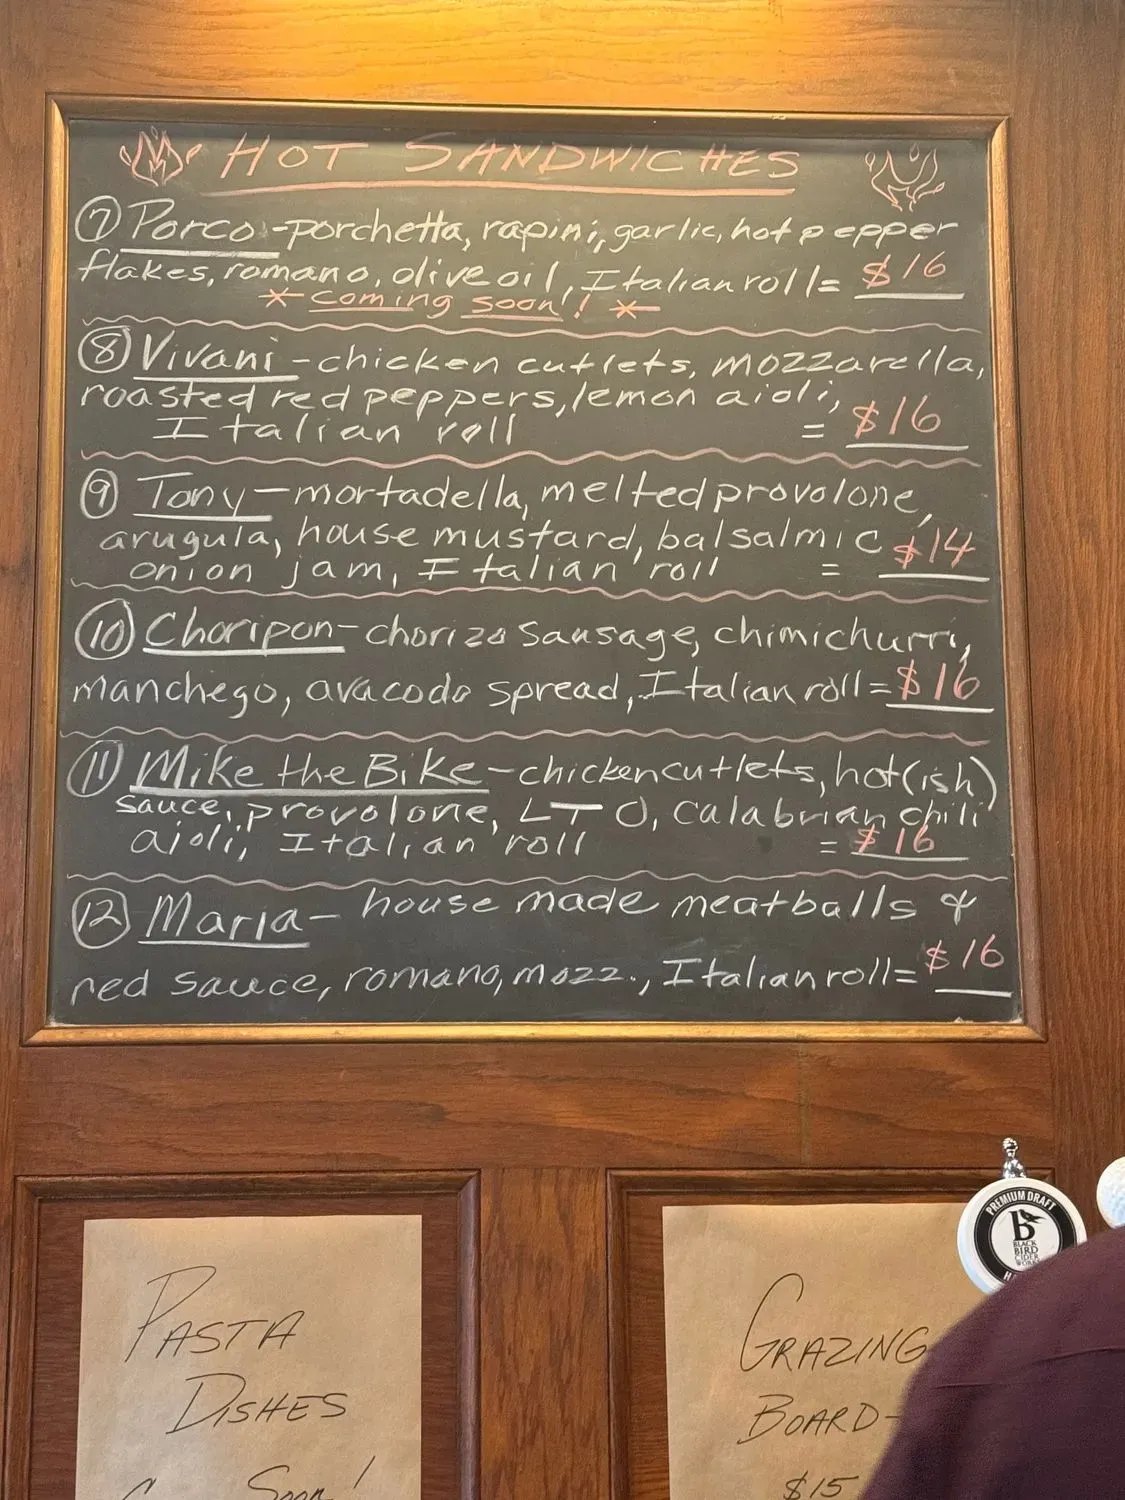 HOT SANDWICHES
⑦ Porco - porchetta, rapini, garlic, hot pepper
flakes, romano, olive oil, Italian roll = $16
* coming soon! *
⑧ Vivani - chicken cutlets, mozzarella,
roasted red peppers, lemon aioli,
Italian roll = $16
⑨ Tony - mortadella, melted provolone,
arugula, house mustard, balsalmic
onion jam, Italian roll = $14
⑩ Choripon - chorizo sausage, chimichurri,
manchego, avacodo spread, Italian roll = $16
⑪ Mike the Bike - chicken cutlets, hot(ish)
sauce, provolone, LTO, Calabrian chili
aioli, Italian roll = $16
⑫ Maria - house made meatballs &
red sauce, romano, mozz., Italian roll = $16
PREMIUM DRAFT
BLACK
BIRD
CIDER
WORKS
PASTA
DISHES
Soon!
GRAZING
BOARD-
$15